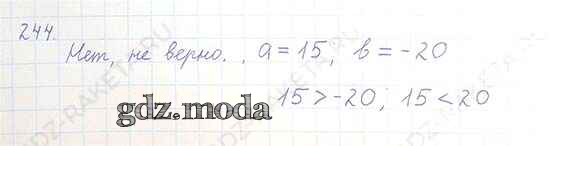 244.
Нет, не верно., a = 15, b = -20
15 > -20; 15 < 20
gdz.moda
GDZ-RAKETA.RU